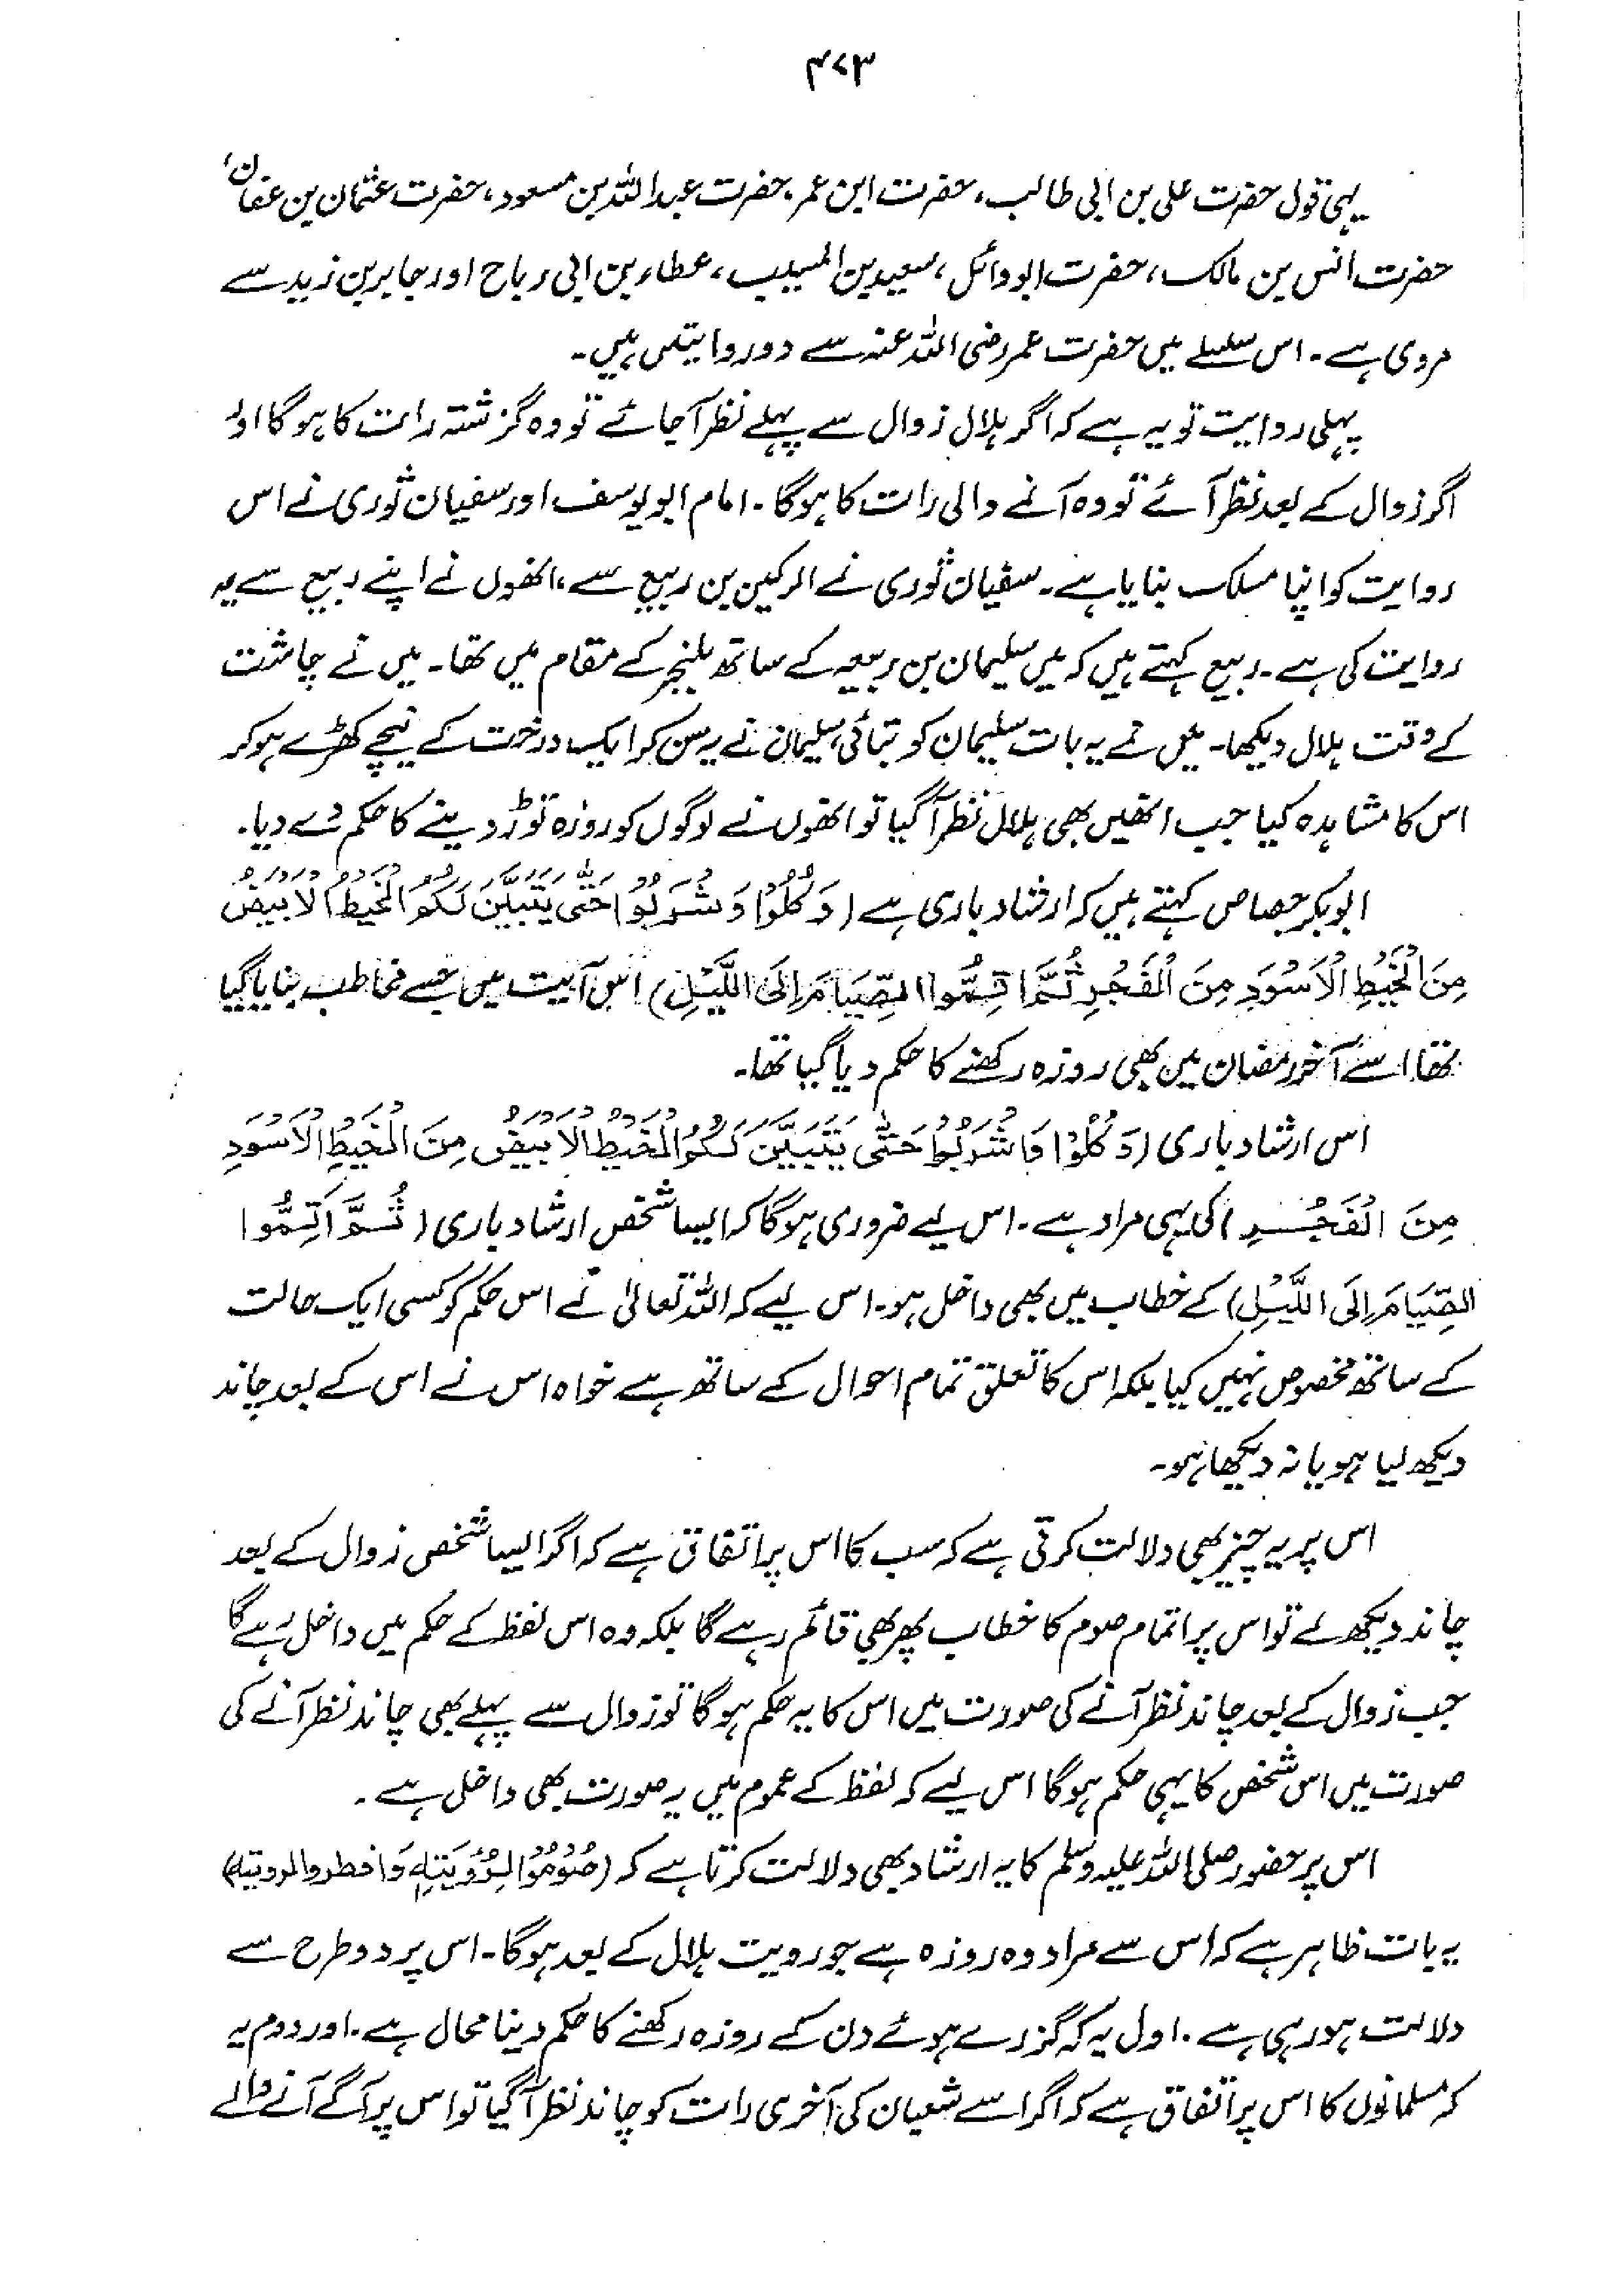 ۴۷۳
یہی قول حضرت علی بن ابی طالب، حضرت ابن عمر، حضرت عبداللہ بن مسعود، حضرت عثمان بن عفان،
حضرت انس بن مالک، حضرت ابو وائل، سعید بن المسیب، عطاء بن ابی رباح اور جابر بن زید سے
مروی ہے۔ اس سلسلے میں حضرت عمر رضی اللہ عنہ سے دو روایتیں ہیں۔
پہلی روایت تو یہ ہے کہ اگر ہلال زوال سے پہلے نظر آجائے تو وہ گزشتہ رات کا ہوگا اور
اگر زوال کے بعد نظر آئے تو وہ آنے والی رات کا ہوگا۔ امام ابو یوسف اور سفیان ثوری نے اس
روایت کو اپنا مسلک بنایا ہے۔ سفیان ثوری نے الرکین بن ربیع سے، انھوں نے اپنے ربیع سے یہ
روایت کی ہے۔ ربیع کہتے ہیں کہ میں سلیمان بن ربیعہ کے ساتھ بلنجر کے مقام میں تھا۔ میں نے چاشت
کے وقت ہلال دیکھا۔ میں نے یہ بات سلیمان کو بتائی، سلیمان نے یہ سن کر ایک درخت کے نیچے کھڑے ہو کر
اس کا مشاہدہ کیا جب انھیں بھی ہلال نظر آگیا تو انھوں نے لوگوں کو روزہ توڑ دینے کا حکم دے دیا۔
ابوبکر جصاص کہتے ہیں کہ ارشاد باری ہے (وَكُلُوْا وَشْرَبُوْا حَتّٰى يَتَبَيَّنَ لَكُمُ الْخَيْطُ الْاَبْيَضُ
مِنَ الْخَيْطِ الْاَسْوَدِ مِنَ الْفَجْرِ ثُمَّ اَتِمُّوا الصِّيَامَ اِلَى اللَّيْلِ) اس آیت میں جسے مخاطب بنایا گیا
تھا اسے آخر رمضان میں بھی روزہ رکھنے کا حکم دیا گیا تھا۔
اس ارشاد باری (وَكُلُوْا وَاشْرَبُوْا حَتّٰى يَتَبَيَّنَ لَكُمُ الْخَيْطُ الْاَبْيَضُ مِنَ الْخَيْطِ الْاَسْوَدِ
مِنَ الْفَجْرِ) کی یہی مراد ہے۔ اس لیے ضروری ہوگا کہ ایسا شخص ارشاد باری (ثُمَّ اَتِمُّوا
الصِّيَامَ اِلَى اللَّيْلِ) کے خطاب میں بھی داخل ہو۔ اس لیے کہ اللہ تعالیٰ نے اس حکم کو کسی ایک حالت
کے ساتھ مخصوص نہیں کیا بلکہ اس کا تعلق تمام احوال کے ساتھ ہے خواہ اس نے اس کے بعد چاند
دیکھ لیا ہو یا نہ دیکھا ہو۔
اس پر یہ چیز بھی دلالت کرتی ہے کہ سب کا اس پر اتفاق ہے کہ اگر ایسا شخص زوال کے بعد
چاند دیکھ لے تو اس پر اتمام صوم کا خطاب پھر بھی قائم رہے گا بلکہ وہ اس لفظ کے حکم میں داخل رہے گا
جب زوال کے بعد چاند نظر آنے کی صورت میں اس کا یہ حکم ہوگا تو زوال سے پہلے بھی چاند نظر آنے کی
صورت میں اس شخص کا یہی حکم ہوگا اس لیے کہ لفظ کے عموم میں یہ صورت بھی داخل ہے۔
اس پر حضور صلی اللہ علیہ وسلم کا یہ ارشاد بھی دلالت کرتا ہے کہ (صُوْمُوْا لِرُؤْيَتِهٖ وَافطروا لرويته)
یہ بات ظاہر ہے کہ اس سے مراد وہ روزہ ہے جو رویت ہلال کے بعد ہوگا۔ اس پر دو طرح سے
دلالت ہو رہی ہے۔ اول یہ کہ گزرے ہوئے دن کے روزہ رکھنے کا حکم دینا محال ہے۔ اور دوم یہ
کہ مسلمانوں کا اس پر اتفاق ہے کہ اگر اسے شعبان کی آخری رات کو چاند نظر آگیا تو اس پر آگے آنے والے